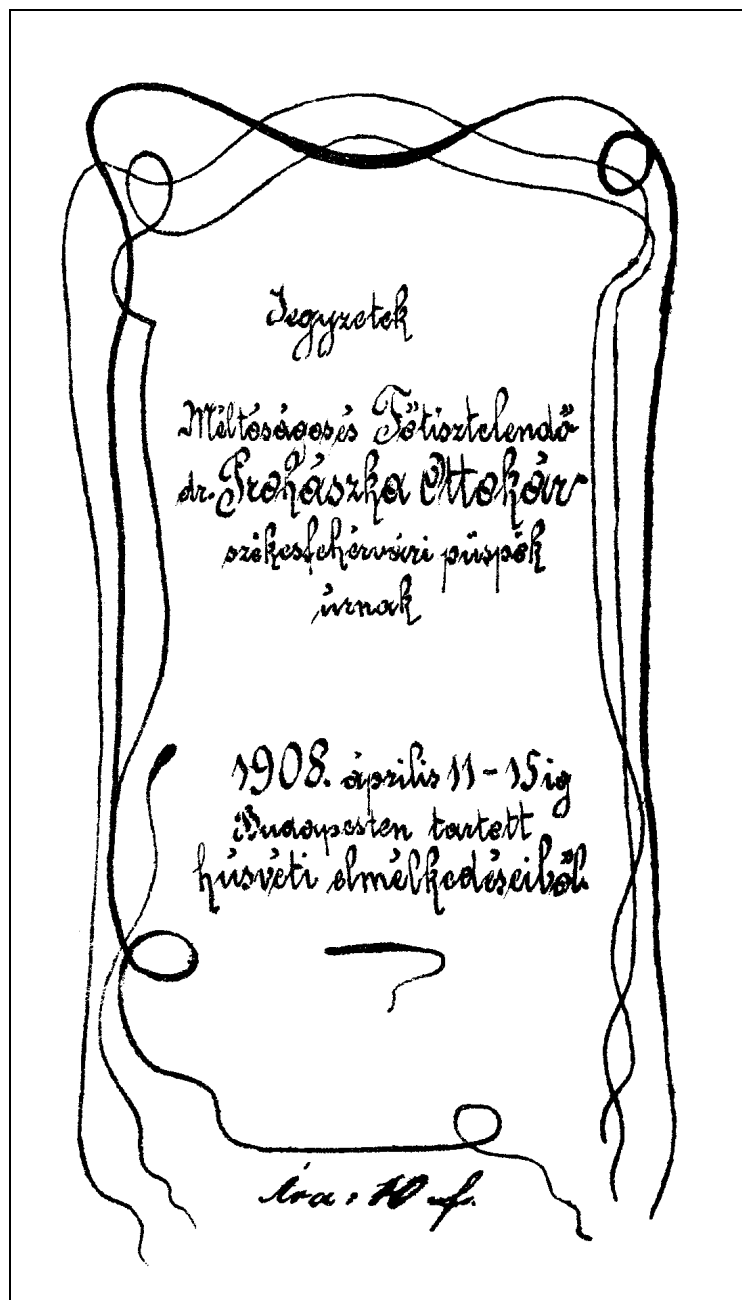 Jegyzetek
Méltóságos és Főtisztelendő
dr. Prohászka Ottokár
székesfehérvári püspök
úrnak
1908. április 11-15 ig
Budapesten tartott
húsvéti elmélkedéseiből.
Ára: 10 f.